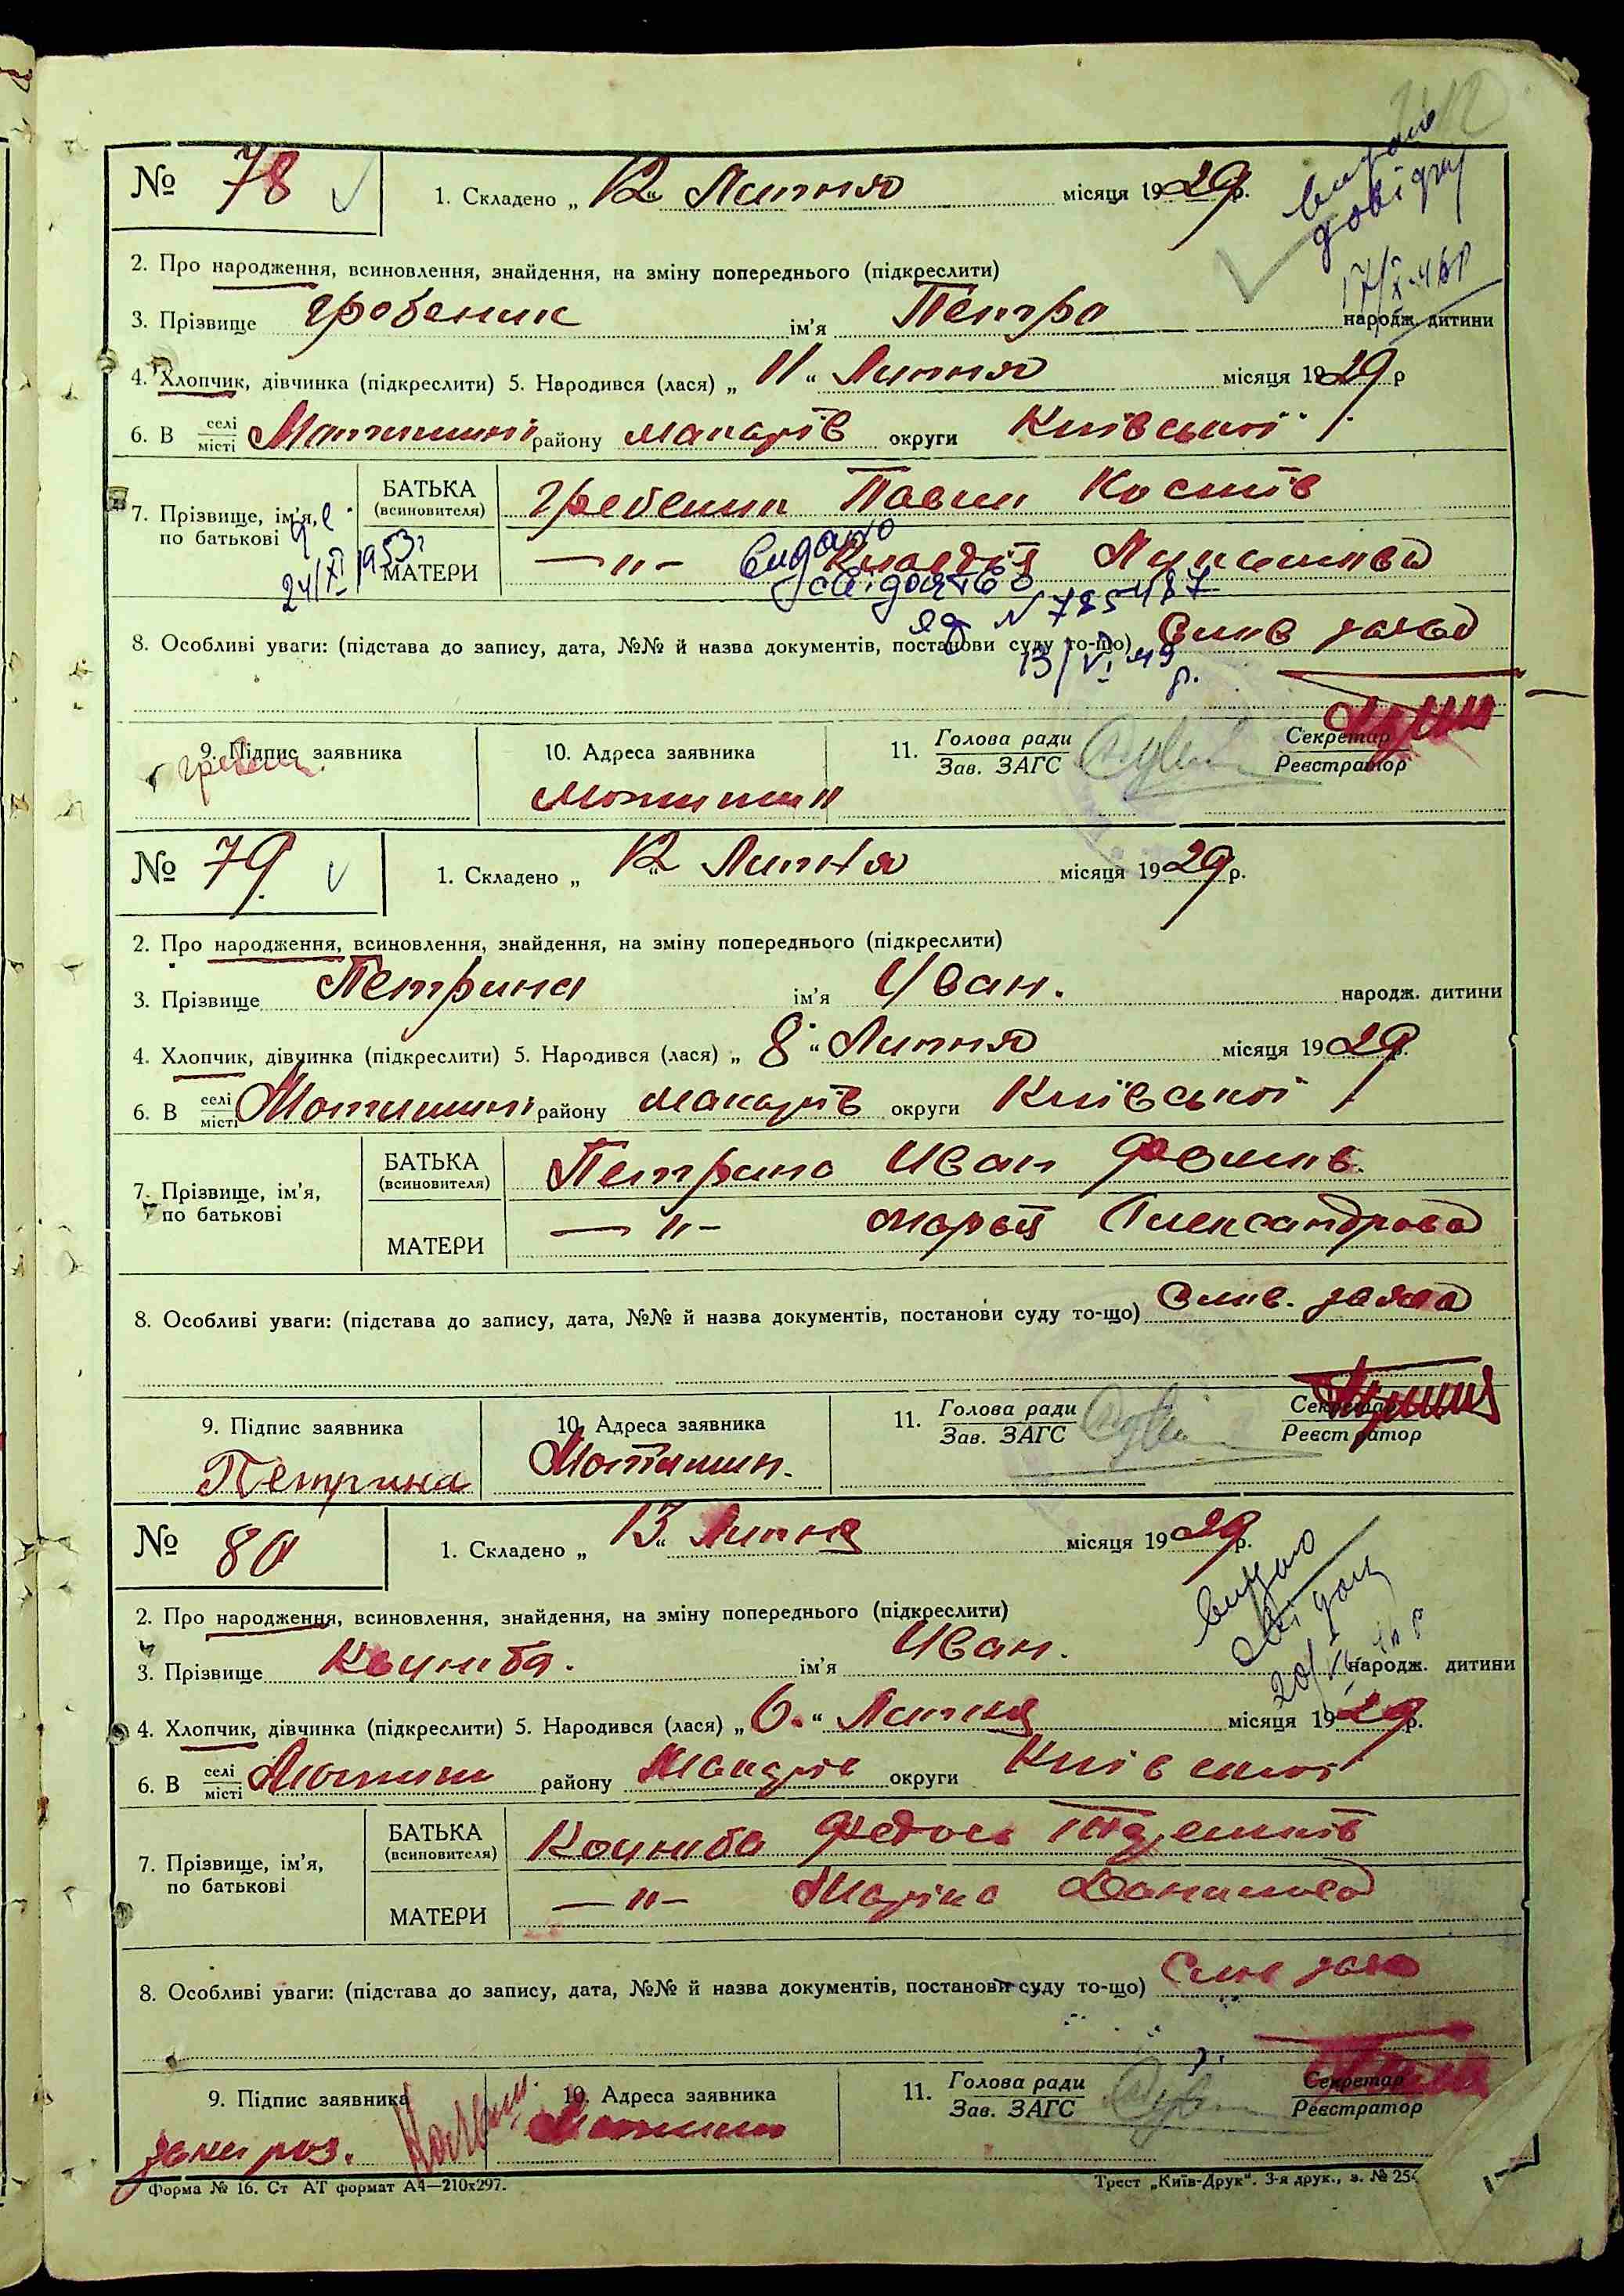 № 78
1. Складено „ 12 “ Липня місяця 1929 р.
видано довідку
17/X-46р
2. Про народження, всиновлення, знайдення, на зміну попереднього (підкреслити)
3. Прізвище Гребеник ім'я Петро народж. дитини
4. Хлопчик, дівчинка (підкреслити) 5. Народився (лася) „ 11 “ Липня місяця 1929 р
6. В селі місті Мотижині району Макарів округи Київської
7. Прізвище, ім'я, по батькові
БАТЬКА (всиновителя) Гребеник Павло Костів
МАТЕРИ —"— Клавдія
24/XI 1953г
видано свідоцтво
№ 785487
8. Особливі уваги: (підстава до запису, дата, №№ й назва документів, постанови суду то-що) Слив заява
13/VI 49 р.
9. Підпис заявника
10. Адреса заявника
11. Голова ради Зав. ЗАГС
Секретар Реєстратор
Мотижин
№ 79.
1. Складено „ 12 “ Липня місяця 1929 р.
2. Про народження, всиновлення, знайдення, на зміну попереднього (підкреслити)
3. Прізвище Петрина ім'я Иван. народж. дитини
4. Хлопчик, дівчинка (підкреслити) 5. Народився (лася) „ 8 “ Липня місяця 1929 р.
6. В селі місті Мотижині району Макарів округи Київської
7. Прізвище, ім'я, по батькові
БАТЬКА (всиновителя) Петрина Иван
МАТЕРИ —"— Марья Александрова
8. Особливі уваги: (підстава до запису, дата, №№ й назва документів, постанови суду то-що) Слив. заява
9. Підпис заявника
10. Адреса заявника
11. Голова ради Зав. ЗАГС
Секретар Реєстратор
Петрина
Мотижин.
№ 80
1. Складено „ 13 “ Липня місяця 1929 р.
видано свідоц
2. Про народження, всиновлення, знайдення, на зміну попереднього (підкреслити)
3. Прізвище Коцюба. ім'я Иван. народж. дитини
4. Хлопчик, дівчинка (підкреслити) 5. Народився (лася) „ 6. “ Липня місяця 1929 р.
6. В селі місті Мотижин району Макарів округи Київської
7. Прізвище, ім'я, по батькові
БАТЬКА (всиновителя) Коцюба Федось
МАТЕРИ —"— Маріка Данилова
8. Особливі уваги: (підстава до запису, дата, №№ й назва документів, постанови суду то-що) Слив заява
9. Підпис заявника
10. Адреса заявника
11. Голова ради Зав. ЗАГС
Секретар Реєстратор
Мотижин
Форма № 16. Ст АТ формат А4—210х297.
Трест „Київ-Друк“. 3-я друк., з. № 254